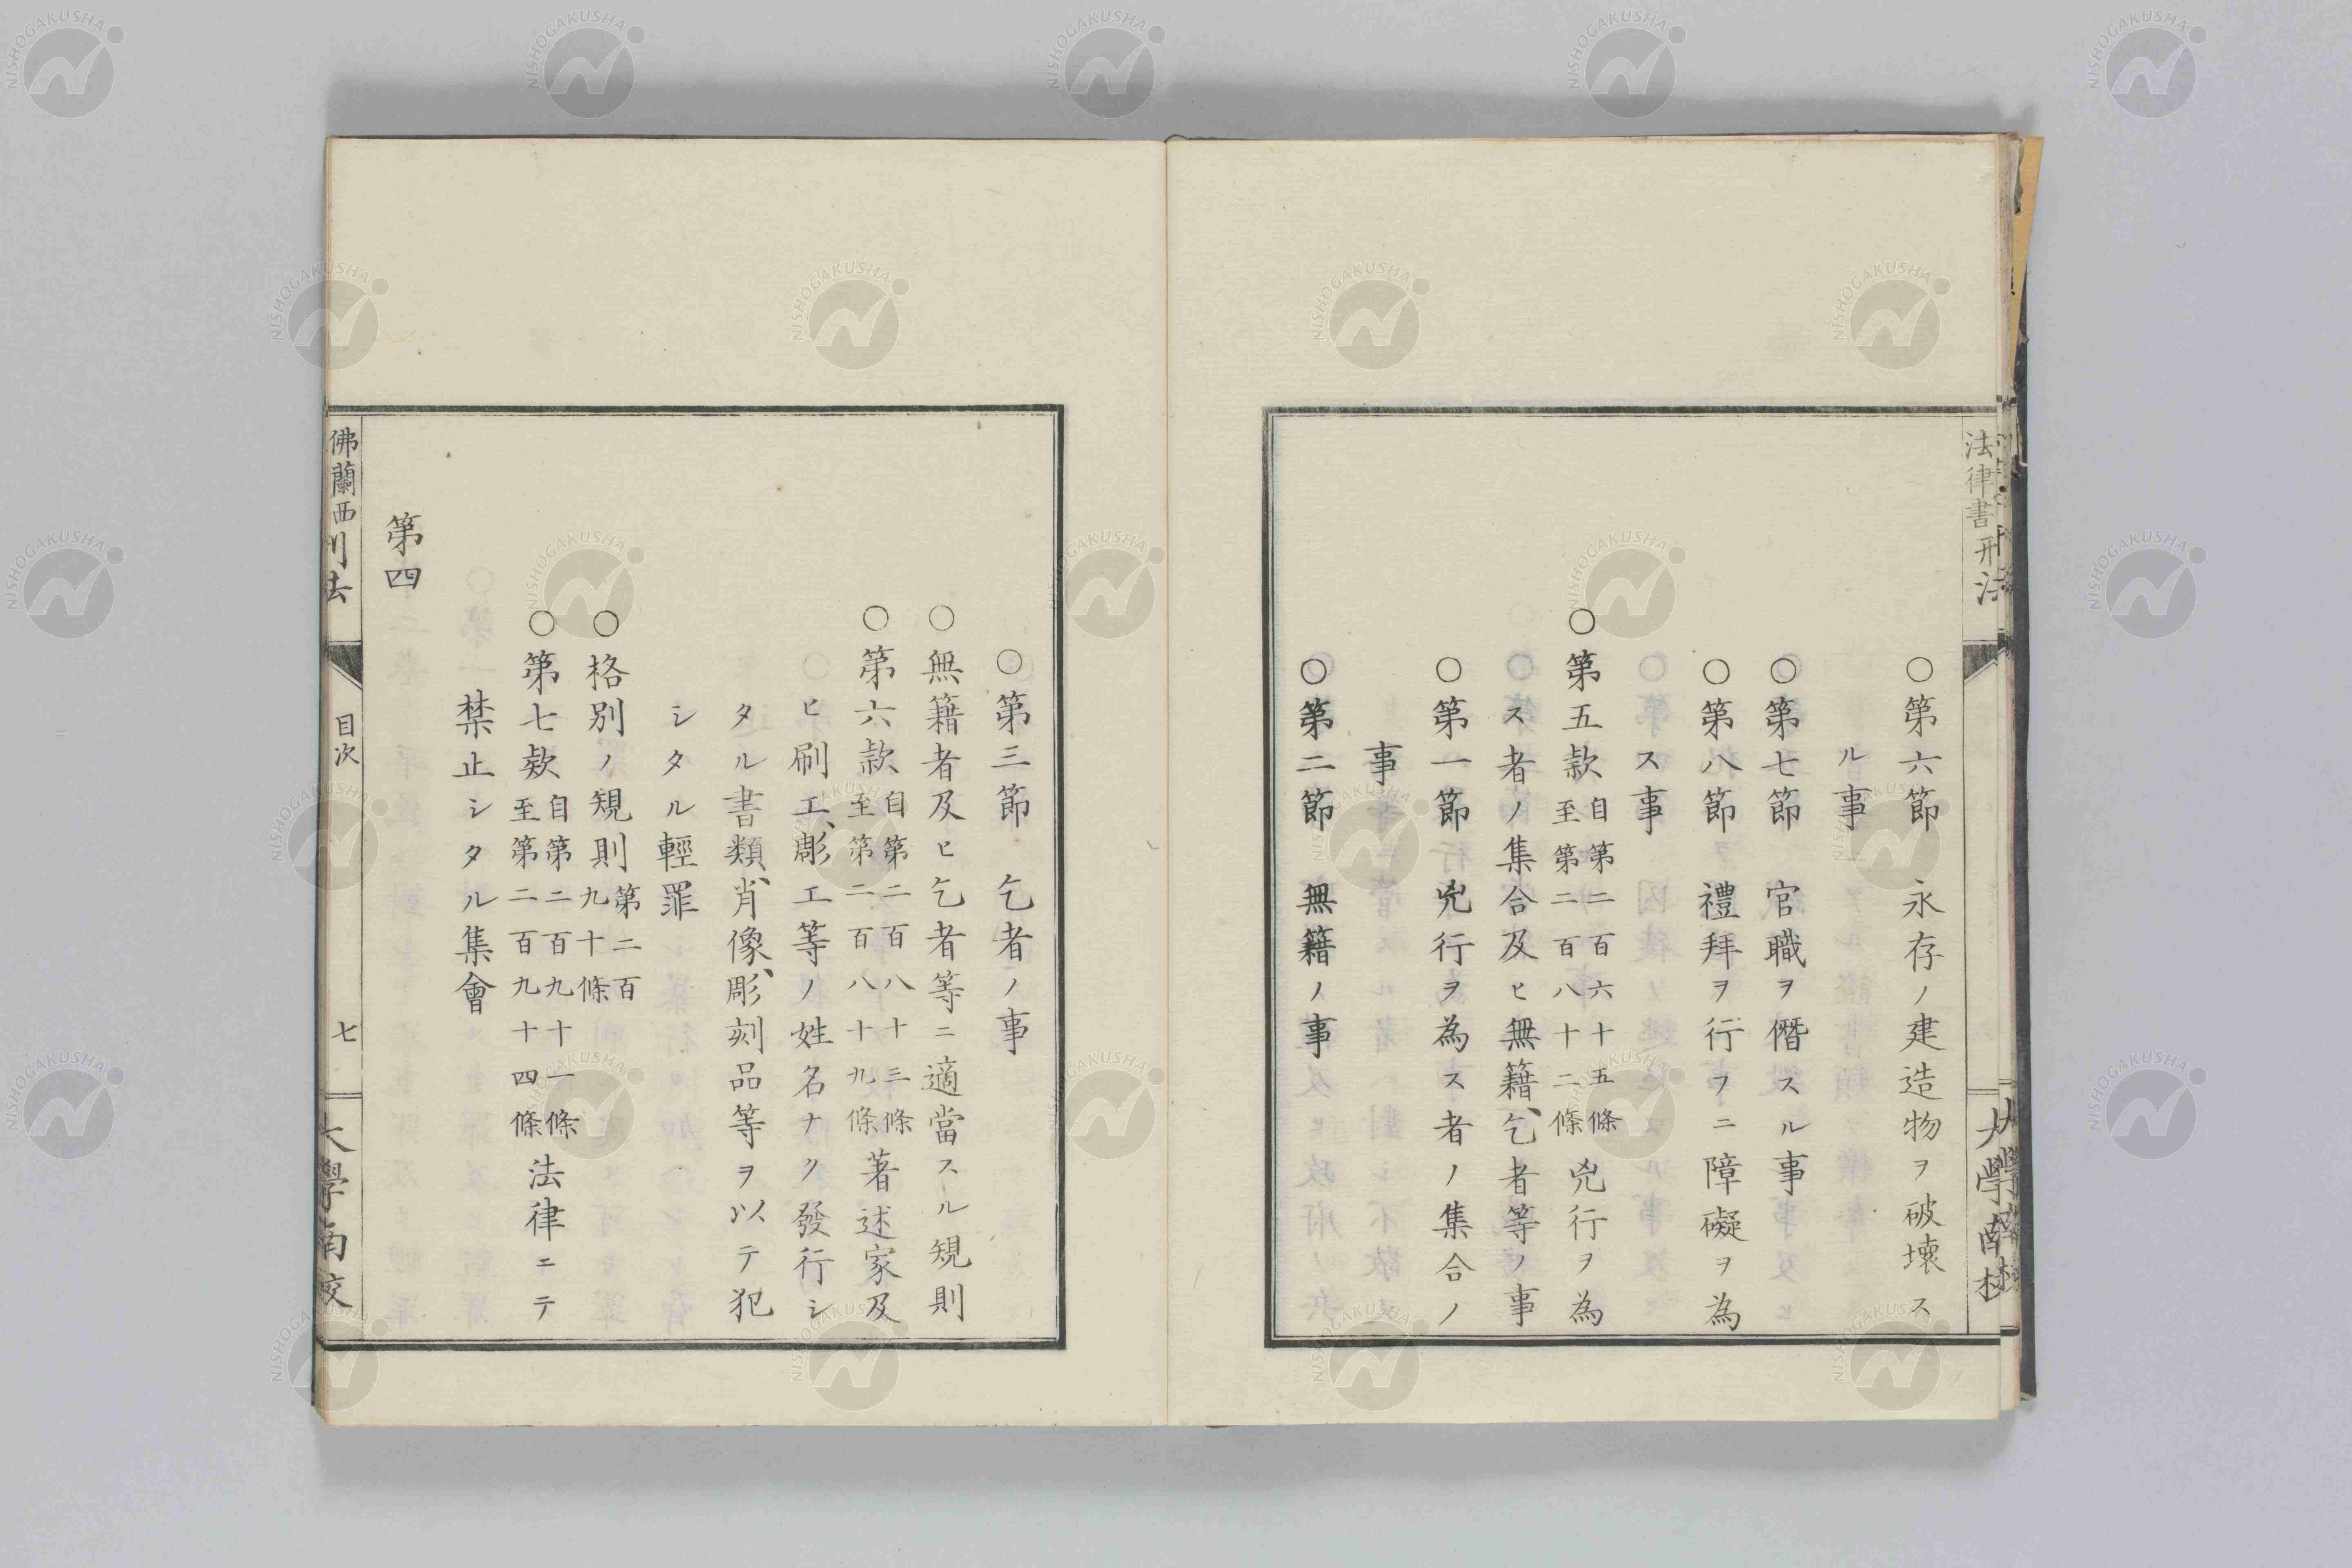 法律書刑法
○第六節 永存ノ建造物ヲ破壞ス
ル事
○第七節 官職ヲ僭スル事
○第八節 禮拜ヲ行フニ障礙ヲ為
ス事
○第五款 自第二百六十五條 至第二百八十二條 兇行ヲ為
ス者ノ集合及ヒ無籍、乞者等ノ事
○第一節 兇行ヲ為ス者ノ集合ノ
事
○第二節 無籍ノ事
大學南校
○第三節 乞者ノ事
○無籍者及ヒ乞者等ニ適當スル規則
○第六款 自第二百八十三條 至第二百八十九條 著述家及
ヒ刷工、彫工等ノ姓名ナク發行シ
タル書類、肖像、彫刻品等ヲ以テ犯
シタル輕罪
○格別ノ規則 第二百九十條
○第七款 自第二百九十一條 至第二百九十四條 法律ニテ
禁止シタル集會
第四
佛蘭西刑法
目次
七
大學南校
NISHOGAKUSHA